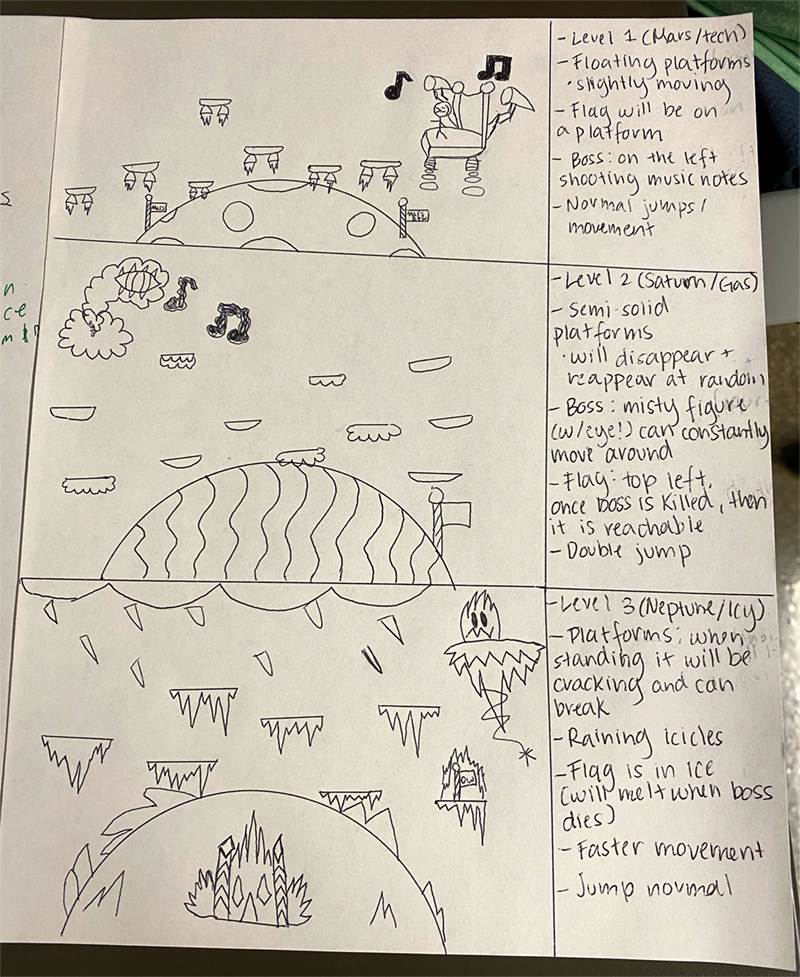 - Level 1 (Mars/tech)
- Floating platforms
• slightly moving
- Flag will be on
a platform
- Boss: on the left
shooting music notes
- Normal jumps/
movement
- Level 2 (Saturn/Gas)
- Semi-solid
platforms
• will disappear +
reappear at random
- Boss: misty figure
(w/eye!) can constantly
move around
- Flag: top left,
once boss is killed, then
it is reachable
- Double jump
- Level 3 (Neptune/Icy)
- Platforms: when
standing it will be
cracking and can
break
- Raining icicles
- Flag is in ice
(will melt when boss
dies)
- Faster movement
- Jump normal